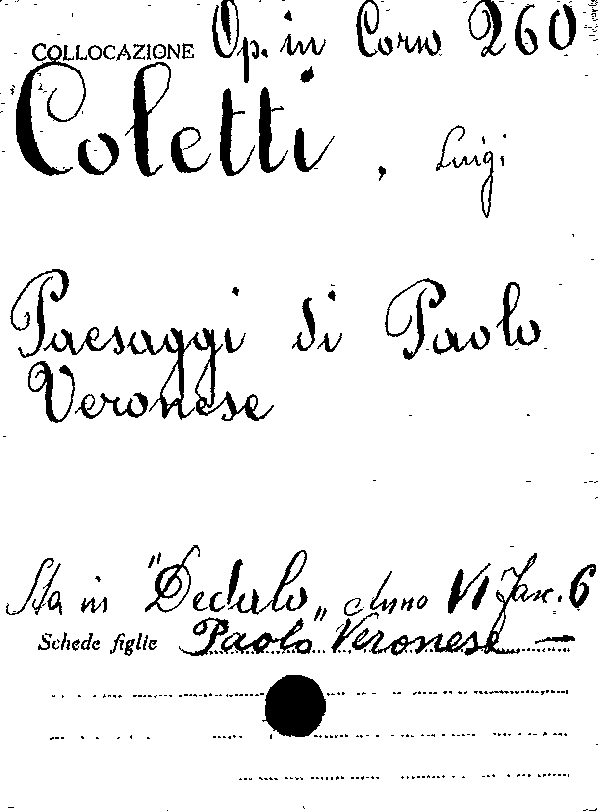 COLLOCAZIONE Op. in Corso 260
Coletti, Luigi
Paesaggi di Paolo
Veronese
Sta in "Dedalo„ Anno VI Fasc. 6
Schede figlie Paolo Veronese —